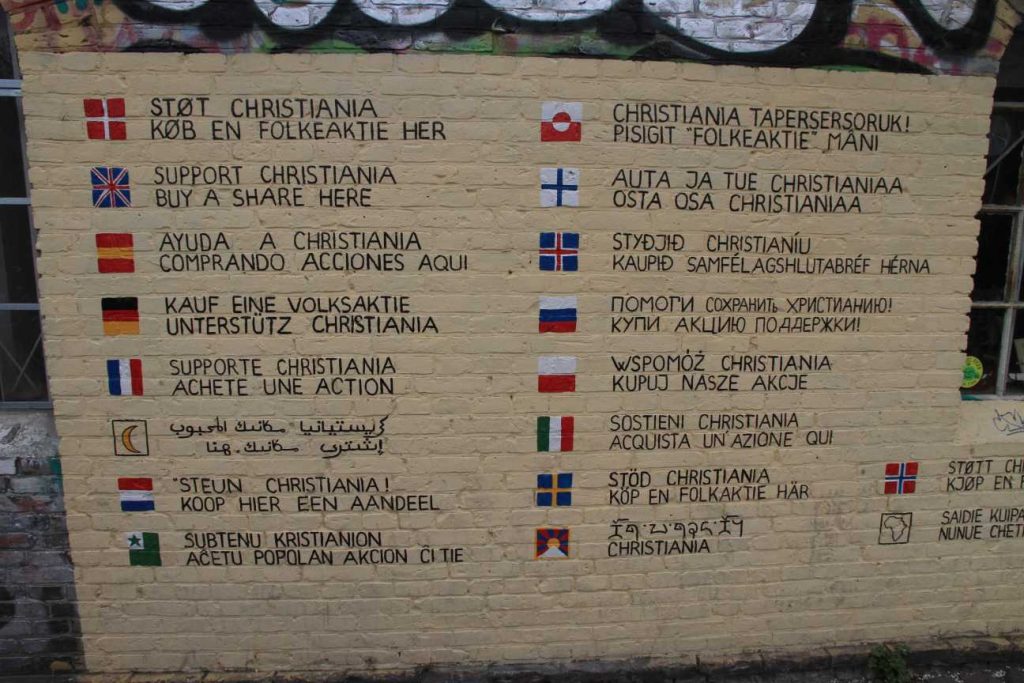 STØT CHRISTIANIA
KØB EN FOLKEAKTIE HER
SUPPORT CHRISTIANIA
BUY A SHARE HERE
AYUDA A CHRISTIANIA
COMPRANDO ACCIONES AQUI
KAUF EINE VOLKSAKTIE
UNTERSTÜTZ CHRISTIANIA
SUPPORTE CHRISTIANIA
ACHETE UNE ACTION
كريستيانيا مكانك المحبوب
إشتري مكانك هنا
"STEUN CHRISTIANIA!
KOOP HIER EEN AANDEEL
SUBTENU KRISTIANION
AĈETU POPOLAN AKCION ĈI TIE
CHRISTIANIA TAPERSERSORUK!
PISIGIT "FOLKEAKTIE" MÂNI
AUTA JA TUE CHRISTIANIAA
OSTA OSA CHRISTIANIAA
STYÐJIÐ CHRISTIANÍU
KAUPIÐ SAMFÉLAGSHLUTABRÉF HÉRNA
ПОМОГИ СОХРАНИТЬ ХРИСТИАНИЮ!
КУПИ АКЦИЮ ПОДДЕРЖКИ!
WSPOMÓŻ CHRISTIANIA
KUPUJ NASZE AKCJE
SOSTIENI CHRISTIANIA
ACQUISTA UN'AZIONE QUI
STÖD CHRISTIANIA
KÖP EN FOLKAKTIE HÄR
CHRISTIANIA
STØTT CH
KJØP EN F
SAIDIE KUIPA
NUNUE CHETI